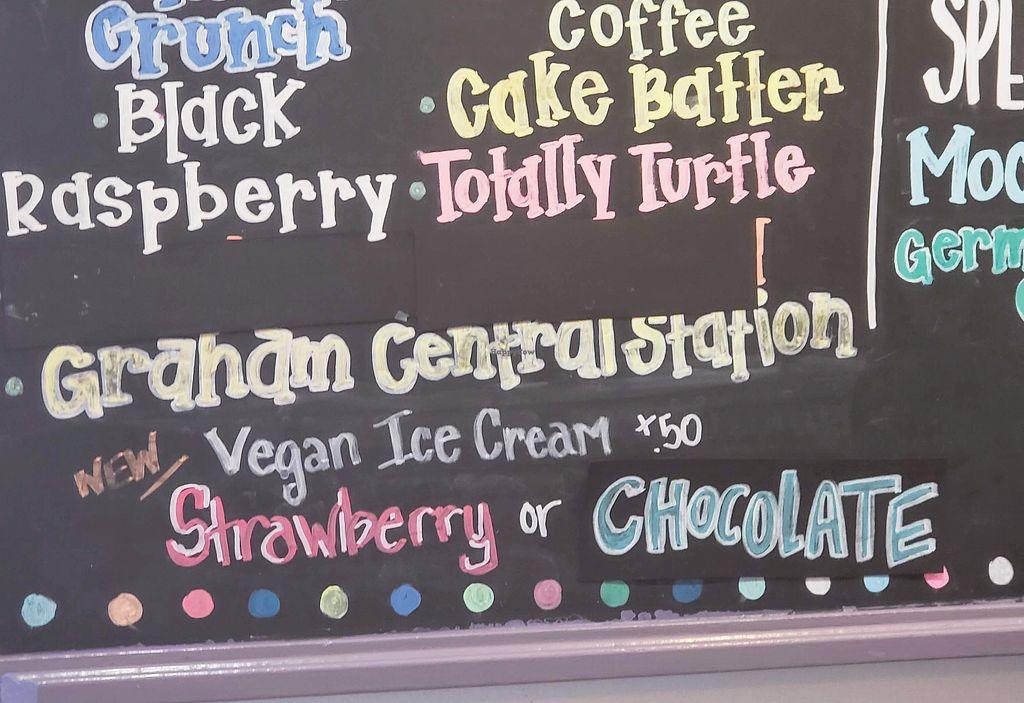 Crunch
• Black
Raspberry
Coffee
• Cake Batter
• Totally Turtle
• Graham Central Station
NEW Vegan Ice Cream +.50
Strawberry or CHOCOLATE